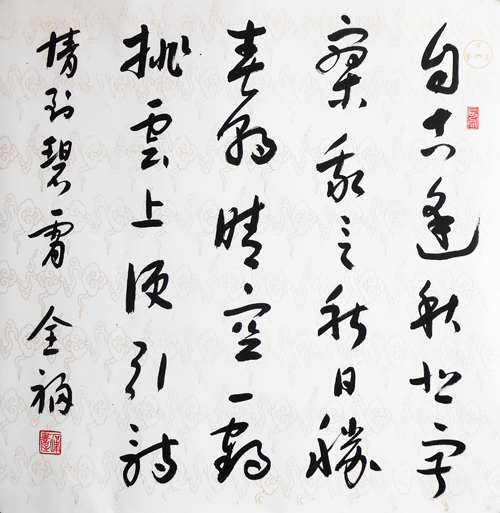 自古逢秋悲寂
寥我言秋日勝
春朝晴空一鶴
排雲上便引詩
情到碧霄 全福